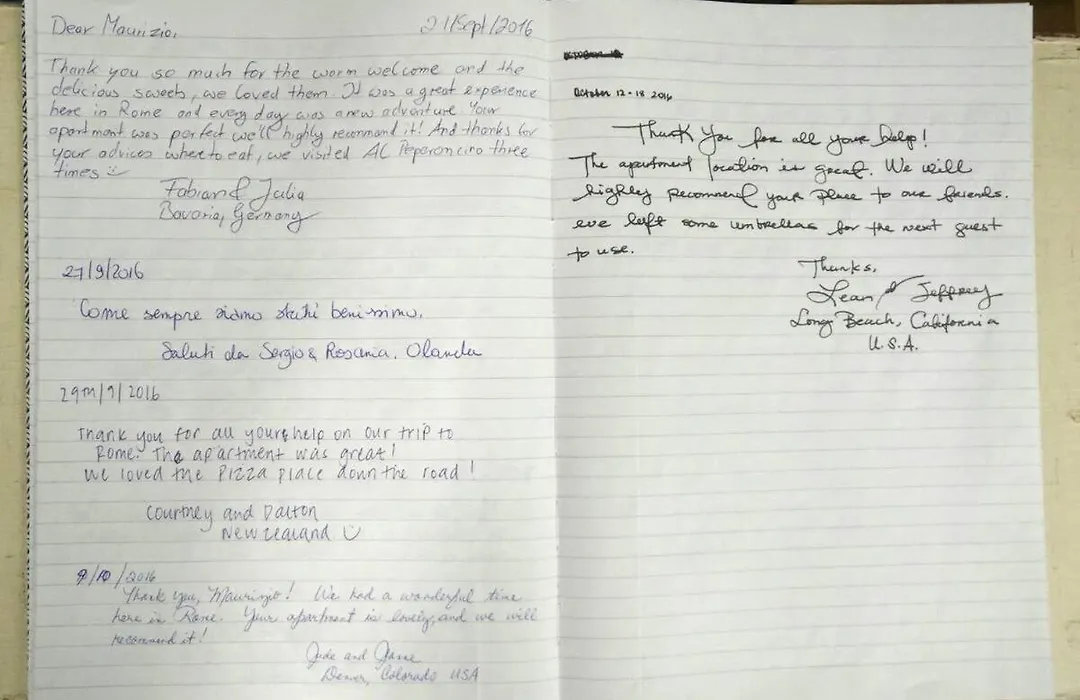 Dear Maurizio,
21/Sept/2016
Thank you so much for the warm welcome and the
delicious sweets, we loved them. It was a great experience
here in Rome and every day was a new adventure. Your
apartment was perfect we'll highly recommend it! And thanks for
your advices where to eat, we visited Al Peperoncino three
times
Fabian & Julia
Bavaria, Germany
27/9/2016
Come sempre siamo stati benissimo.
Saluti da Sergio & Rosaria. Olanda
29TH/9/2016
Thank you for all your help on our trip to
Rome. The apartment was great!
We loved the Pizza place down the road!
Courtney and Dalton
New Zealand
9/10/2016
Thank you, Maurizio! We had a wonderful time
here in Rome. Your apartment is lovely, and we will
recommend it!
and
Denver, Colorado USA
October 12-18 2016
Thank you for all your help!
The apartment location is great. We will
highly recommend your place to our friends.
we left some umbrellas for the next guest
to use.
Thanks,
Lean & Jeffrey
Long Beach, California
U.S.A.